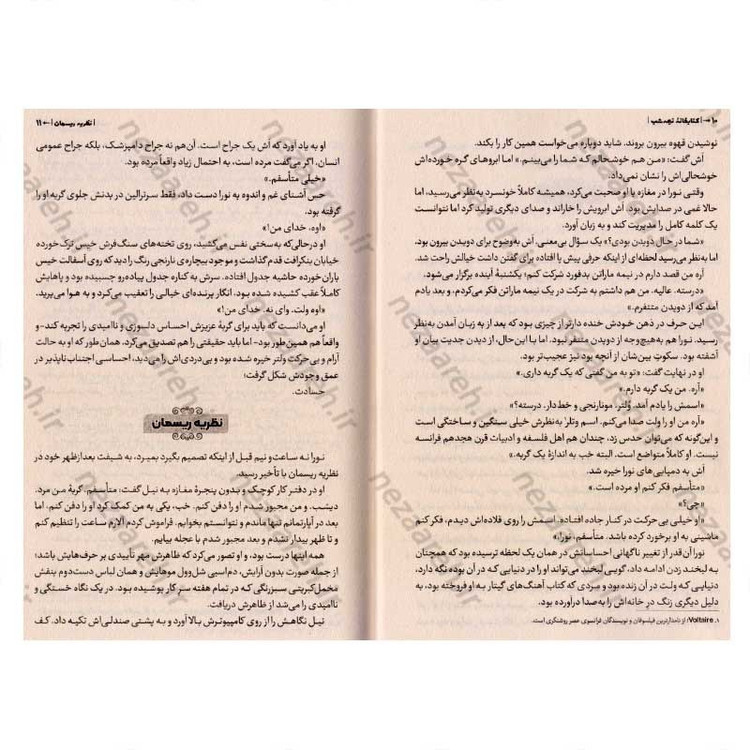 ۱۰ → | کتابخانهٔ نیمه‌شب |
نوشیدن قهوه بیرون بروند. شاید دوباره می‌خواست همین کار را بکند.
اَش گفت: «من هم خوشحالم که شما را می‌بینم.» اما ابروهای گره خورده‌اش
خوشحالی‌اش را نشان نمی‌داد.
وقتی نورا در مغازه با او صحبت می‌کرد، همیشه کاملاً خونسرد به‌نظر می‌رسید، اما
حالا غمی در صدایش بود. اَش ابرویش را خاراند و صدای دیگری تولید کرد اما نتوانست
یک کلمه کامل را مدیریت کند و به زبان آورد.
«شما در حال دویدن بودی؟» یک سؤال بی‌معنی. اَش به‌وضوح برای دویدن بیرون بود.
اما به‌نظر می‌رسید لحظه‌ای از اینکه حرفی پیش پا افتاده برای گفتن داشت خیالش راحت شد.
آره من قصد دارم در نیمه ماراتن بدفورد شرکت کنم؛ یکشنبهٔ آینده برگزار می‌شود.
«درسته. عالیه. من هم داشتم به شرکت در یک نیمه ماراتن فکر می‌کردم، و بعد یادم
آمد که از دویدن متنفرم.»
این حرف در ذهن خودش خنده دارتر از چیزی بود که بعد از به زبان آمدن به‌نظر
رسید. نورا هم به‌هیچ‌وجه از دویدن متنفر نبود. اما با این‌حال، از دیدن جدیت بیان او
آشفته بود. سکوت بین‌شان از آنچه بود نیز عجیب‌تر بود.
او در نهایت گفت: «تو به من گفتی که یک گربه داری.»
«آره. من یک گربه دارم.»
«اسمش را یادم آمد. وُلتر. مونارنجی و خط‌دار. درسته؟»
«آره من او را ولت صدا می‌کنم. اسم ولتر۱ به‌نظرش خیلی سنگین و ساختگی است
و این‌گونه که می‌توان حدس زد، چندان هم اهل فلسفه و ادبیات قرن هجدهم فرانسه
نیست. او کاملاً متواضع است. البته خب به اندازهٔ یک گربه.»
اَش به دمپایی‌های نورا خیره شد.
«متأسفم فکر کنم او مرده است.»
«چی؟»
«او خیلی بی‌حرکت در کنار جاده افتاده. اسمش را روی قلاده‌اش دیدم، فکر کنم
ماشینی به او برخورد کرده باشد. متأسفم، نورا.»
نورا آن‌قدر از تغییر ناگهانی احساساتش در همان یک لحظه ترسیده بود که همچنان
به لبخند زدن ادامه داد، گویی لبخند می‌تواند او را در دنیایی که در آن بوده نگه دارد،
دنیایی که ولت در آن زنده بود و مردی که کتاب آهنگ‌های گیتار به او فروخته بود، به
دلیل دیگری زنگ در خانه‌اش را به‌صدا درآورده بود.
۱. Voltaire: از نامدارترین فیلسوفان و نویسندگان فرانسوی عصر روشنگری است.
| نظریه ریسمان | ← ۱۱
او به یاد آورد که اَش یک جراح است. آن‌هم نه جراح دامپزشک، بلکه جراح عمومی
انسان. اگر می‌گفت مرده است، به احتمال زیاد واقعاً مرده بود.
«خیلی متأسفم.»
حس آشنای غم و اندوه به نورا دست داد، فقط سرترالین در بدنش جلوی گربه او را
گرفته بود.
«اوه، خدای من!»
او درحالی‌که به‌سختی نفس می‌کشید، روی تخته‌های سنگ‌فرش خیس ترک‌خورده
خیابان بنکرافت قدم گذاشت و موجود بیچاره‌ی نارنجی رنگ را دید که روی آسفالت خیس
باران خورده حاشیه جدول افتاده. سرش به کناره جدول پیاده‌رو چسبیده بود و پاهایش
کاملاً عقب کشیده شده بود. انگار پرنده‌ای خیالی را تعقیب می‌کرد و به هوا می‌پرید.
«اوه ولت. وای نه. خدای من!»
او می‌دانست که باید برای گربهٔ عزیزش احساس دلسوزی و ناامیدی را تجربه کند- و
واقعاً هم همین‌طور بود- اما باید حقیقتی را هم تصدیق می‌کرد. همان‌طور که او به حالت
آرام و بی‌حرکت ولتر خیره شده بود و بی‌دردی‌اش را می‌دید، احساسی اجتناب‌ناپذیر در
عمق وجودش شکل گرفت؛
حسادت.
نظریه ریسمان
نورا نُه ساعت و نیم قبل از اینکه تصمیم بگیرد بمیرد، به شیفت بعدازظهر خود در
نظریه ریسمان با تأخیر رسید.
او در دفتر کار کوچک و بدون پنجرهٔ مغازه به نیل گفت: متأسفم. گربهٔ من مرد.
دیشب. و من مجبور شدم او را دفن کنم. خب، یکی به من کمک کرد او را دفن کنم. اما
بعد در آپارتمانم تنها ماندم و نتوانستم بخوابم. فراموش کردم آلارم ساعت را تنظیم کنم
و تا ظهر بیدار نشدم و بعد مجبور شدم با عجله بیایم.
همه اینها درست بود، و او تصور می‌کرد که ظاهرش مهر تأییدی بر حرف‌هایش باشد؛
از جمله صورت بدون آرایش، دم‌اسبی شل‌وول موهایش و همان لباس دست‌دوم بنفش
مخمل‌کبریتی سبزرنگی که در تمام هفته سر کار پوشیده بود. در یک نگاه خستگی و
ناامیدی را می‌شد از ظاهرش دریافت.
نیل نگاهش را از روی کامپیوترش بالا آورد و به پشتی صندلی‌اش تکیه داد. کف
nezaareh.ir